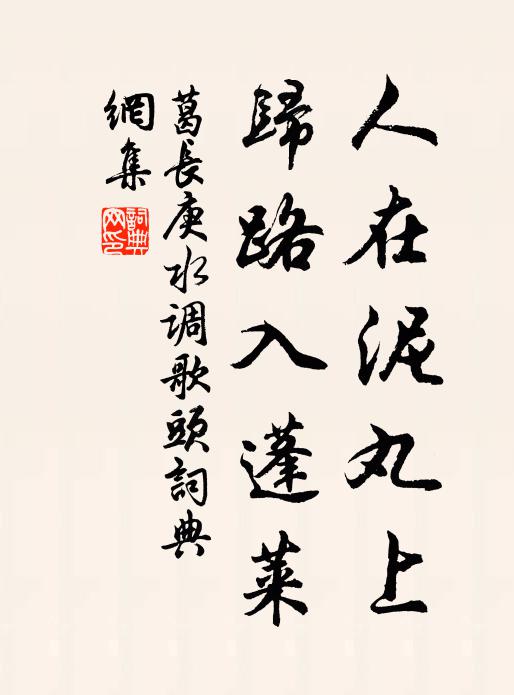 人在泥丸上
歸路入蓬萊
葛長庚水调歌頭詞典
網集
詞典
网印